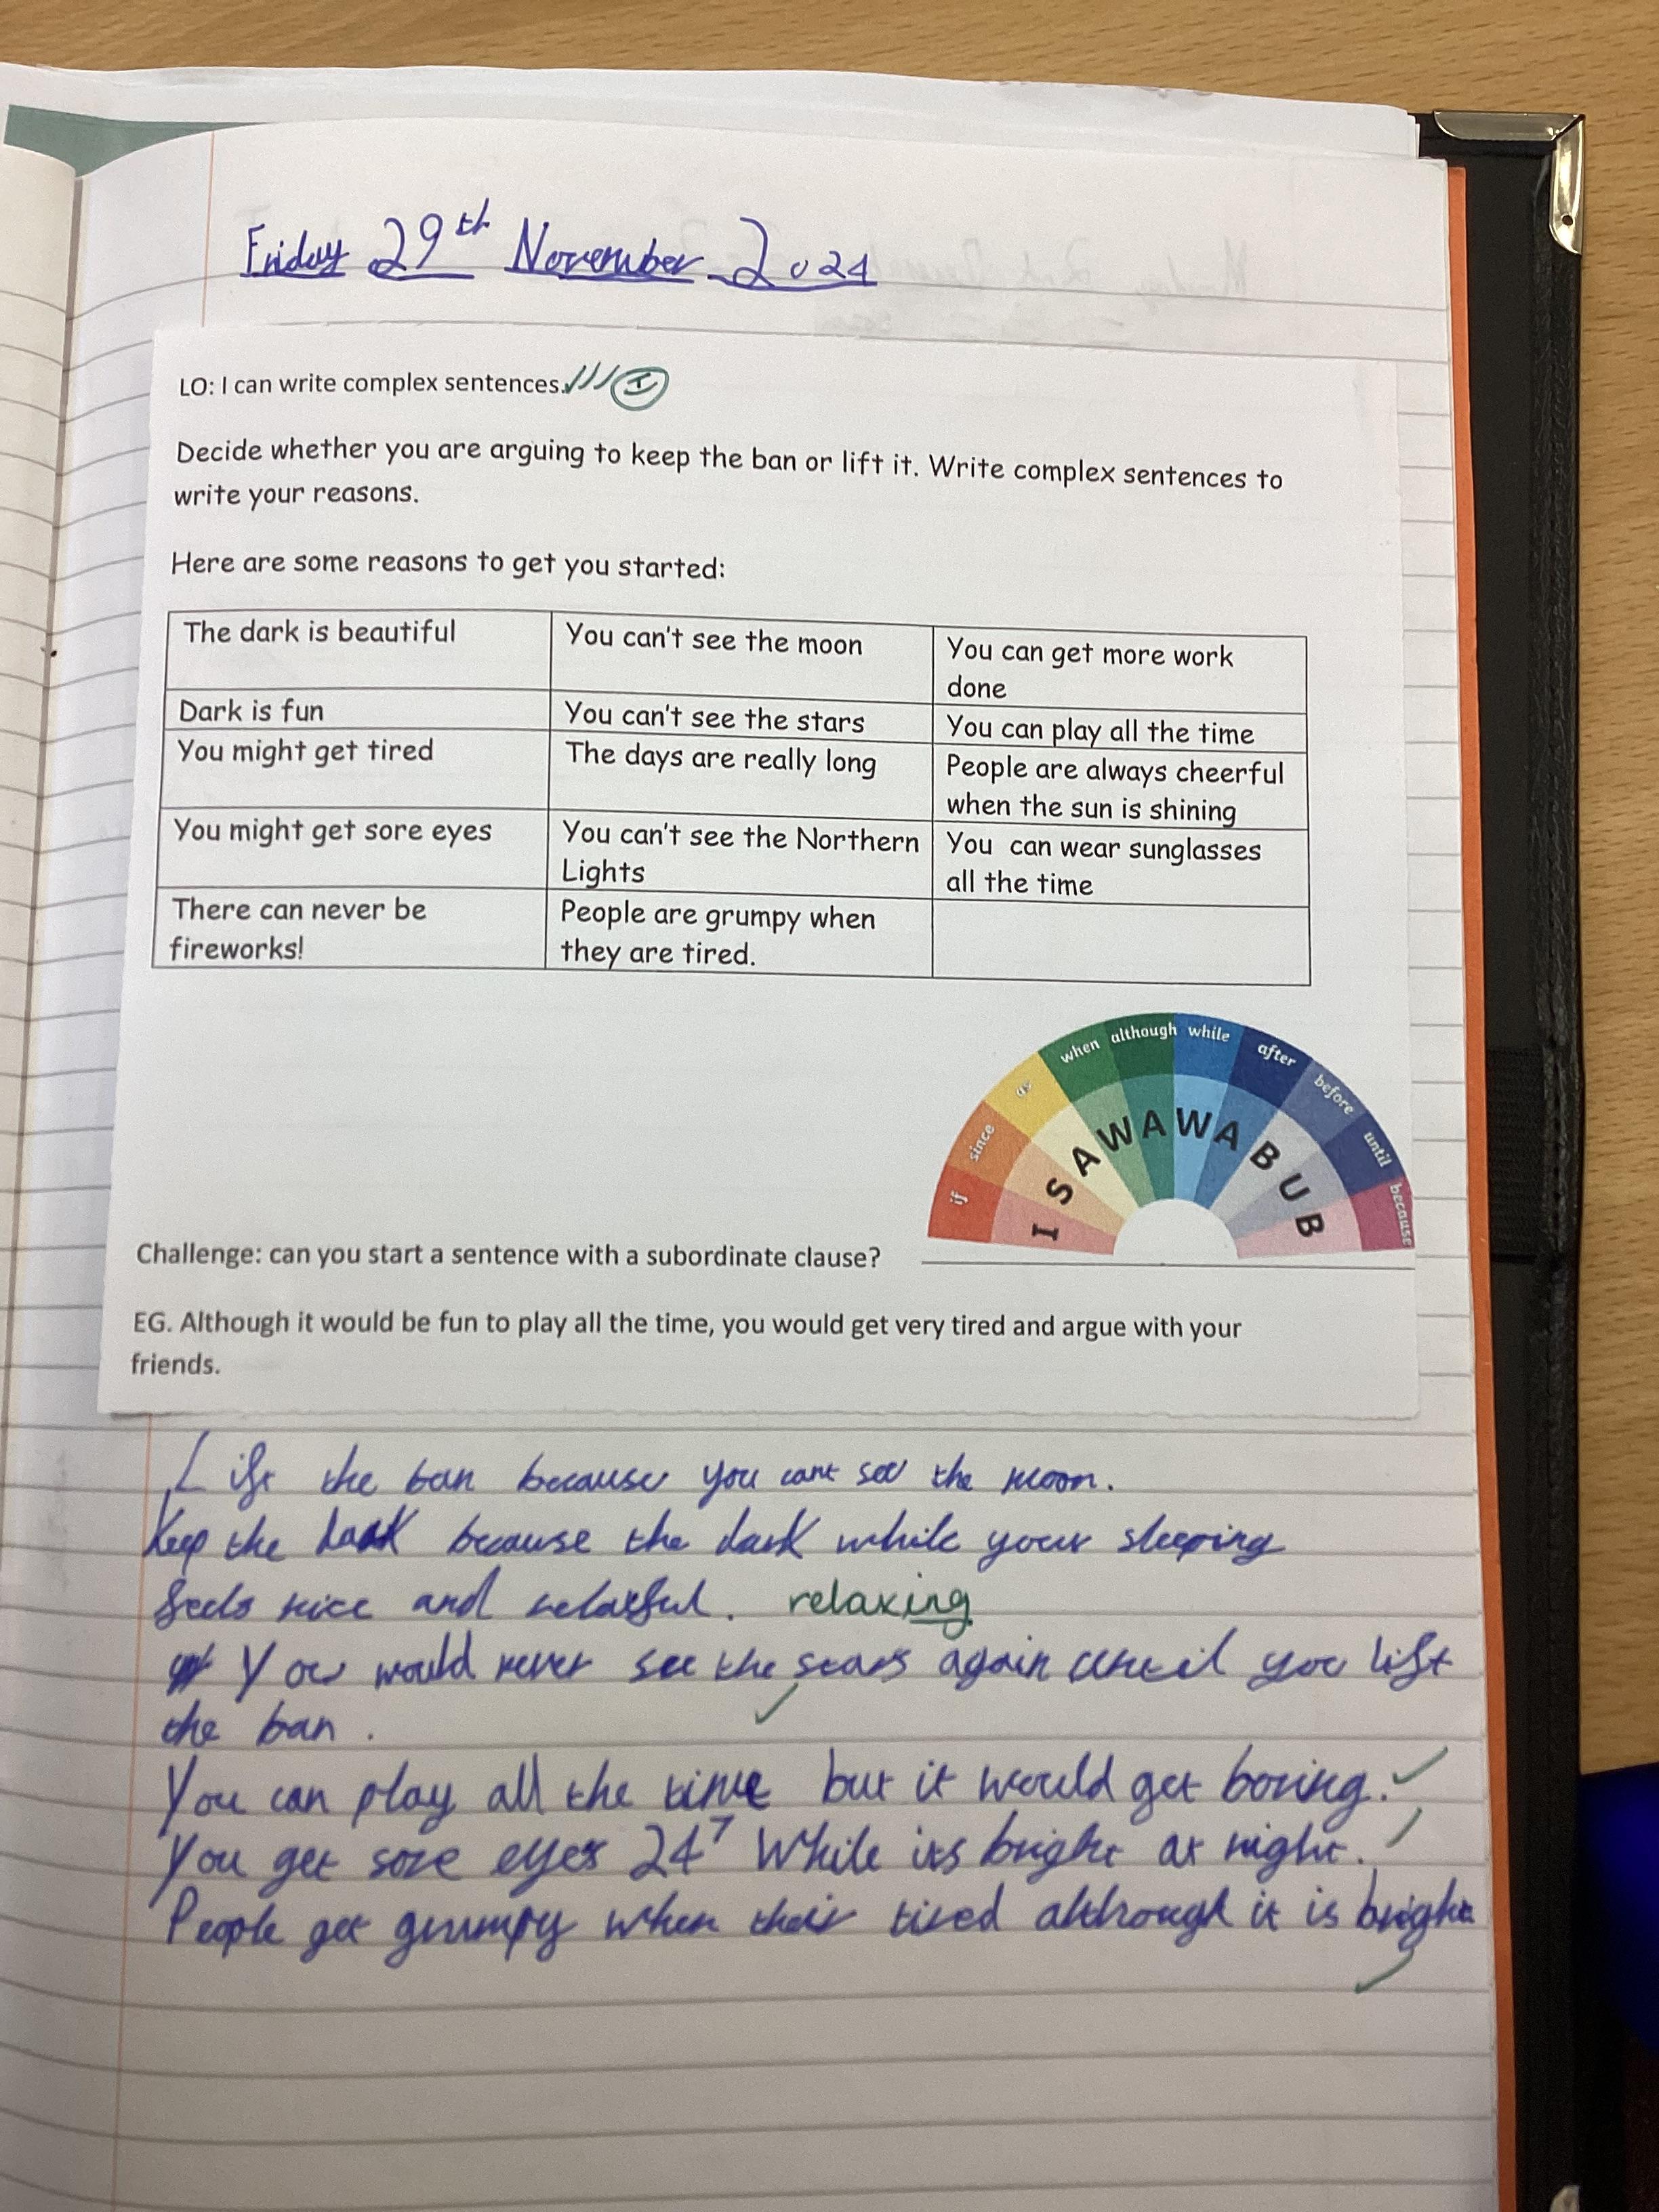 Friday 29th November 2024
LO: I can write complex sentences.
Decide whether you are arguing to keep the ban or lift it. Write complex sentences to
write your reasons.
Here are some reasons to get you started:
The dark is beautiful
You can't see the moon
You can get more work
done
Dark is fun
You can't see the stars
You can play all the time
You might get tired
The days are really long
People are always cheerful
when the sun is shining
You might get sore eyes
You can't see the Northern
Lights
You can wear sunglasses
all the time
There can never be
fireworks!
People are grumpy when
they are tired.
if since as when although while after before until because
I S A W A W A B U B
Challenge: can you start a sentence with a subordinate clause?
EG. Although it would be fun to play all the time, you would get very tired and argue with your
friends.
Lift the ban because you cant see the moon.
Keep the because the dark while your sleeping
feels nice and relaxful. relaxing
You would never see the stars again until you lift
the ban.
You can play all the time but it would get boring.
You get sore eyes 24 7 While its bright at night.
People get grumpy when their tired although it is bright